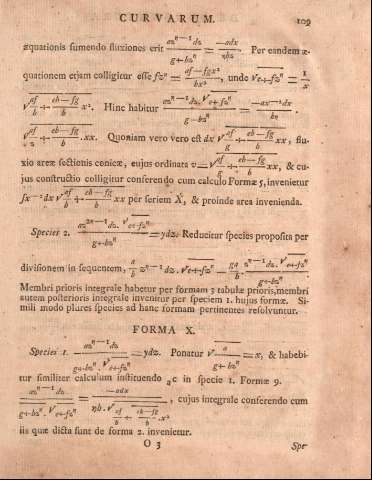 CURVARUM. 109
æquationis sumendo fluxiones erit az^{n-1}dz / g+bz^n = -adx / nbx. Per eandem æ-
quationem etjam colligitur esse fz^n = af-fgx² / bx², unde √e+fz^n = 1/x
√af/b + eb-fg/b x². Hinc habitur az^{n-1}dz.√e+fz^n / g+bz^n = -ax^{-1}dx / bn
√af/b + eb-fg/b .xx. Quoniam vero vero est dx √af/b + eb-fg/b xx, flu-
xio areæ sectionis conicæ, cujus ordinata v=√af/b + eb-fg/b xx, & cu-
jus constructio colligitur conferendo cum calculo Formæ 5, invenietur
∫x^{-1}dx √af/b + eb-fg/b xx per seriem X, & proinde area invenienda.
Species 2. az^{2n-1}dz.√e+fz^n / g+bz^n = ydz. Reducitur species proposita per
divisionem in sequentem, a/b z^{n-1}dz.√e+fz^n - ga/b . z^{n-1}dz.√e+fz^n / g+bz^n
Membri prioris integrale habetur per formam 3 tabulæ prioris, membri
autem posterioris integrale invenitur per speciem 1. hujus formæ. Si-
mili modo plures species ad hanc formam pertinentes resolvuntur.
FORMA X.
Species 1. az^{n-1}dz / g+bz^n.√e+fz^n = ydz. Ponatur √a / g+bz^n = x, & habebi-
tur similiter calculum instituendo ac in specie 1. Formæ 9.
az^{n-1}dz / g+bz^n.√e+fz^n = -adx / nb.√af/b + eb-fg/b .x² , cujus integrale conferendo cum
iis quæ dicta sunt de forma 2. invenietur.
O 3 Spe